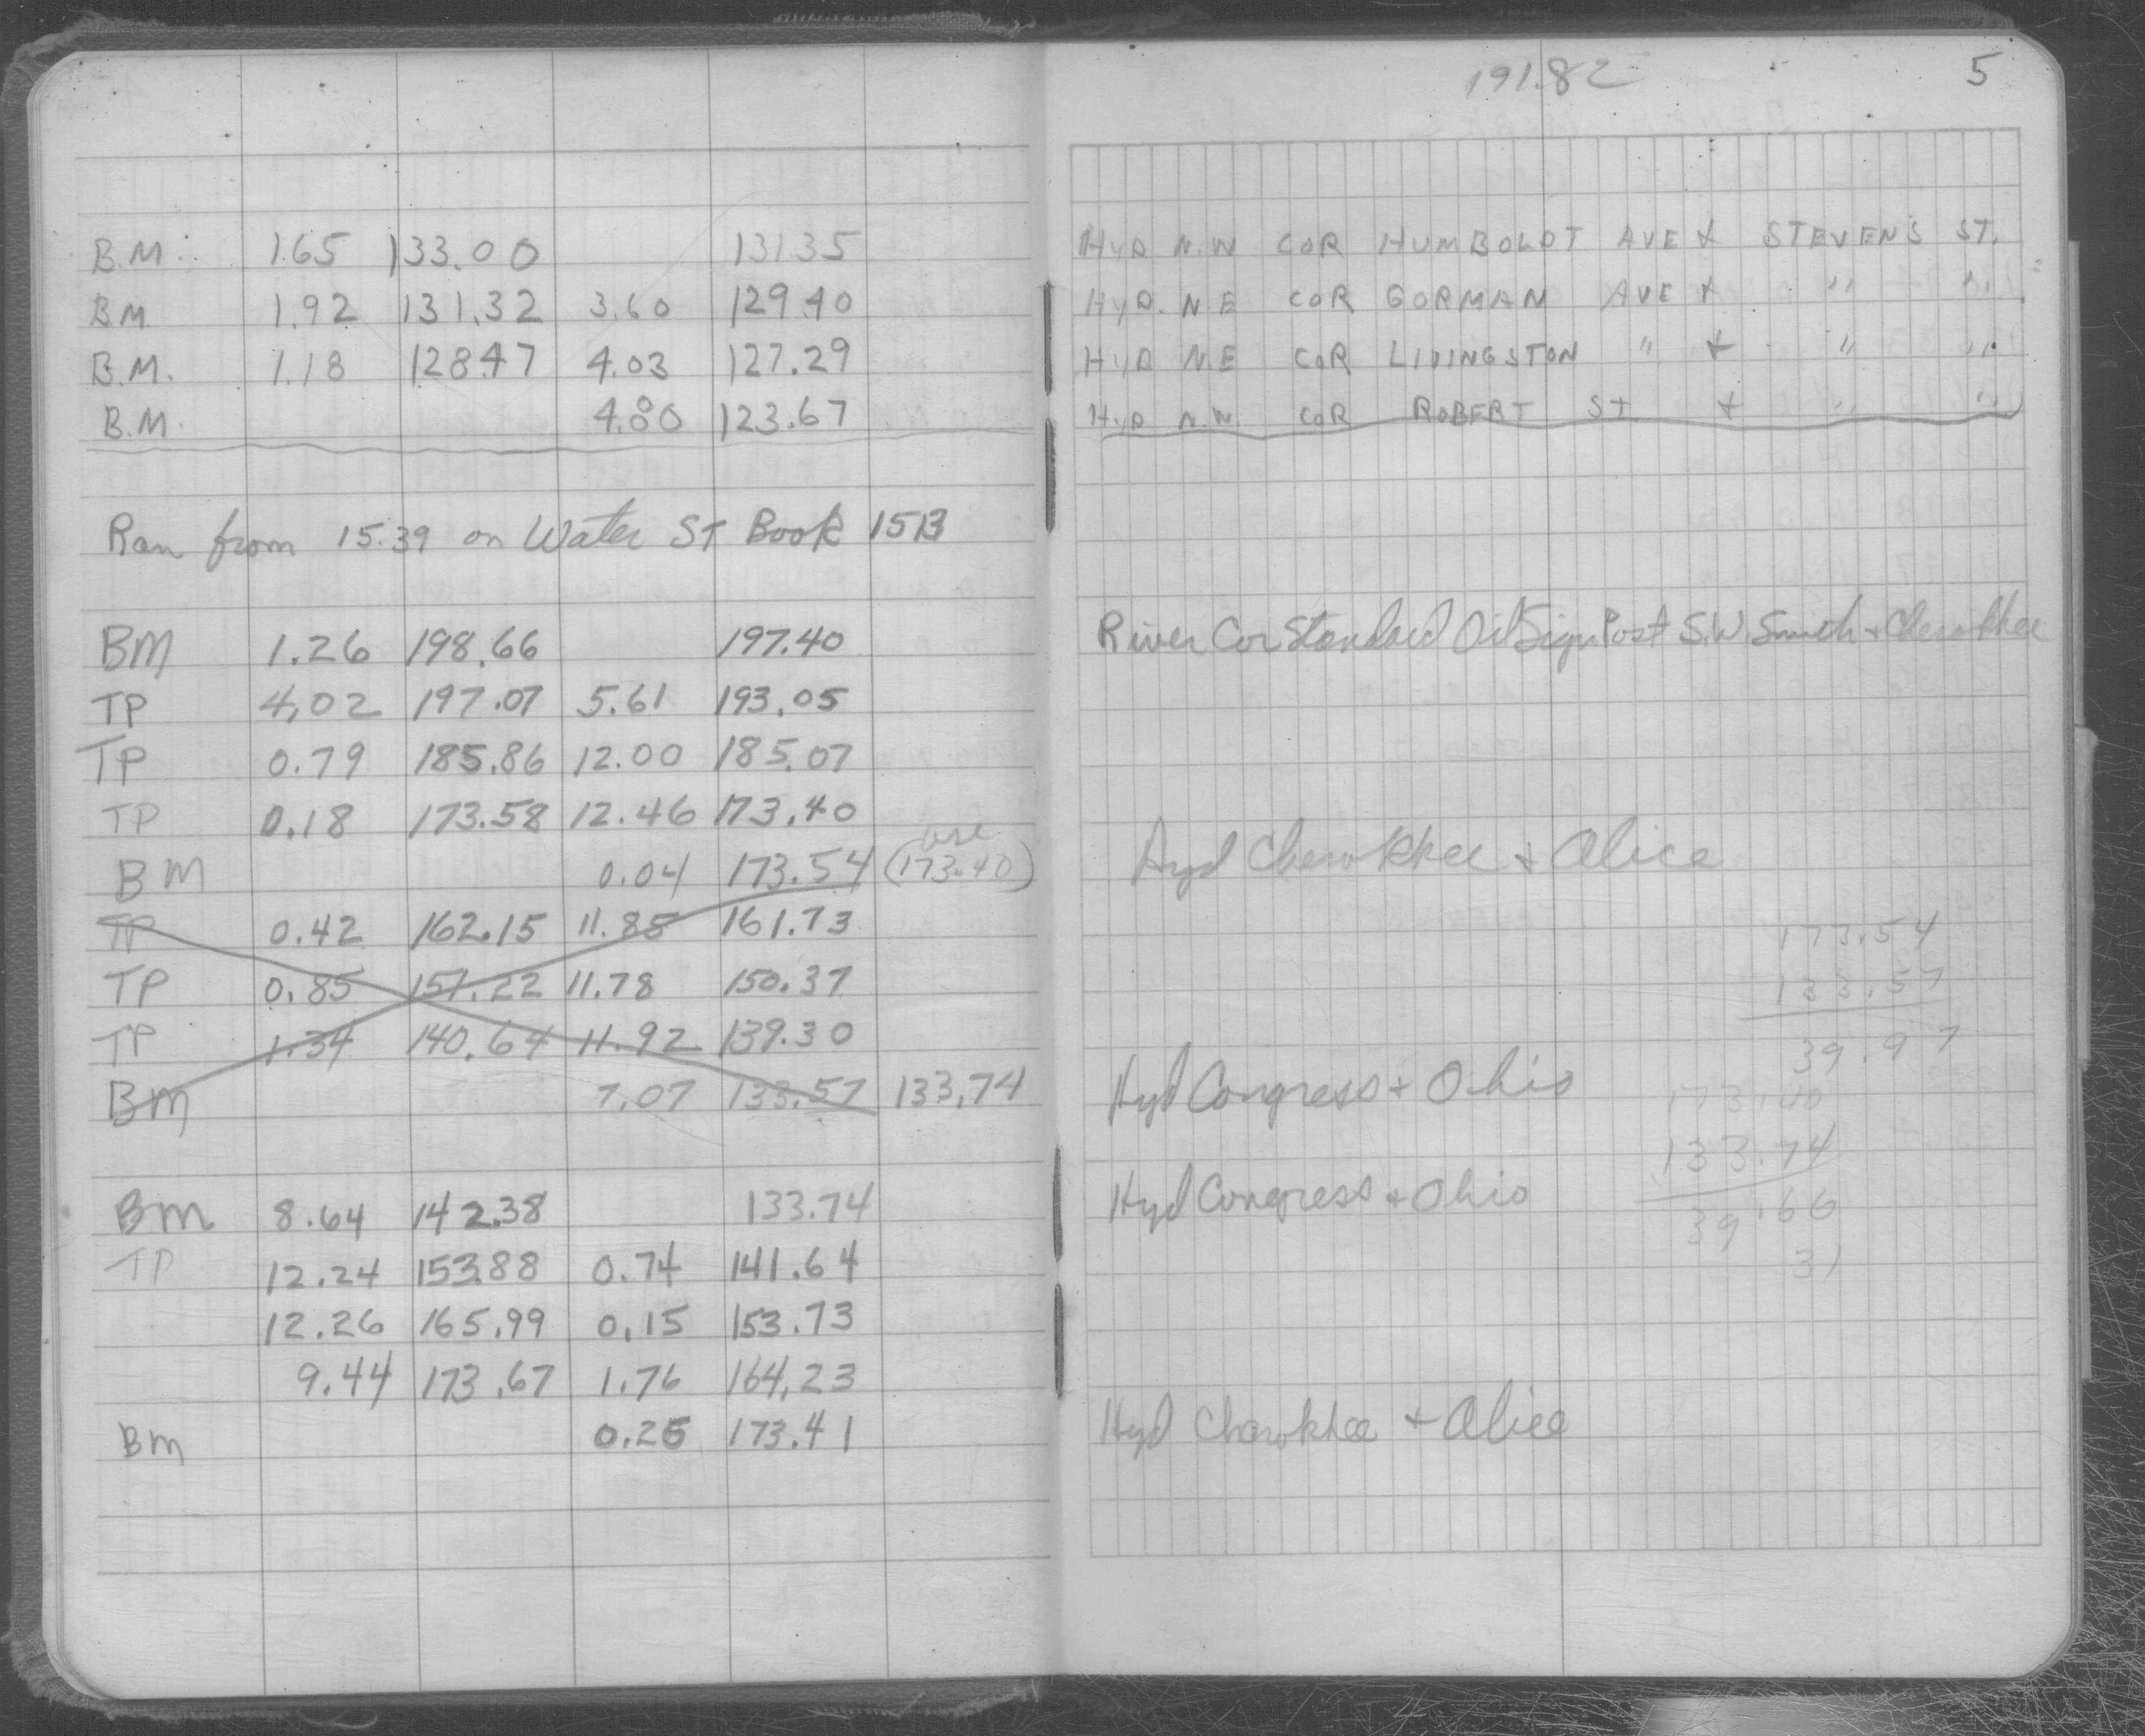 191.82 5
B.M. 1.65 133.00 131.35 HYD N.W COR HUMBOLDT AVE + STEVENS ST.
BM 1.92 131.32 3.60 129.40 HYD. N.E COR GORMAN AVE + " "
B.M. 1.18 128.47 4.03 127.29 HYD N.E COR LIVINGSTON " + " "
B.M. 4.80 123.67 HYD N.W. COR ROBERT ST + " "
Ran from 15.39 on Water St Book 1513
BM 1.26 198.66 197.40 River Cor Standard Oil Sign Post S.W. Smith + Cherokhee
TP 4.02 197.07 5.61 193.05
TP 0.79 185.86 12.00 185.07
TP 0.18 173.58 12.46 173.40
use
BM 0.04 173.54 (173.40) Hyd Cherokhee + Alice
TP 0.42 162.15 11.85 161.73 173.54
TP 0.85 151.22 11.78 150.37 133.57
TP 1.34 140.64 11.92 139.30 39.97
BM 7.07 133.57 133.74 Hyd Congress + Ohio 173.40
133.74
BM 8.64 142.38 133.74 Hyd Congress + Ohio 39.66
TP 12.24 153.88 0.74 141.64 31
12.26 165.99 0.15 153.73
9.44 173.67 1.76 164.23
BM 0.26 173.41 Hyd Cherokhee + Alice